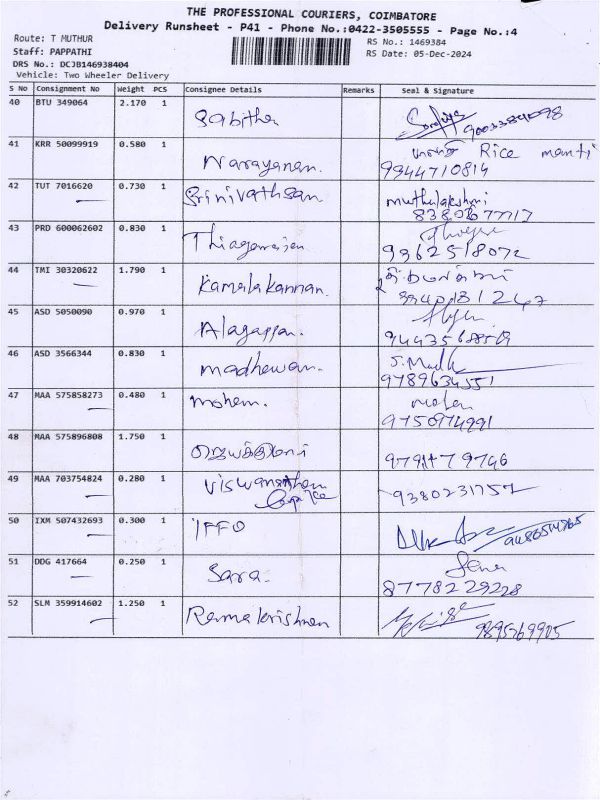 THE PROFESSIONAL COURIERS, COIMBATORE
Delivery Runsheet - P41 - Phone No.:0422-3505555 - Page No.:4
Route: T MUTHUR
RS No.: 1469384
Staff: PAPPATHI
RS Date: 05-Dec-2024
DRS No.: DCJB146938404
Vehicle: Two Wheeler Delivery
S No Consignment No Weight PCS Consignee Details Remarks Seal & Signature
40 BTU 349064 2.170 1
Sabitha
41 KRR 50099919 0.580 1 Rice
Narayanan. 9944710814
42 TUT 7016620 0.730 1 Srinivathsan muthulakshmi
43 PRD 600062602 0.830 1
Thiagarajan 9362518072
44 TMI 30320622 1.790 1
Kamalakannan.
45 ASD 5050090 0.970 1
Alagappan.
46 ASD 3566344 0.830 1
madhewan. 9789634551
47 MAA 575858273 0.480 1
mohem. 9750974991
48 MAA 575896808 1.750 1
49 MAA 703754824 0.280 1 Viswanathan
9380231757
50 IXM 507432693 0.300 1 IFFO
51 DDG 417664 0.250 1
Sara. 8778229228
52 SLM 359914602 1.250 1 Ramakrishnan
9895769905